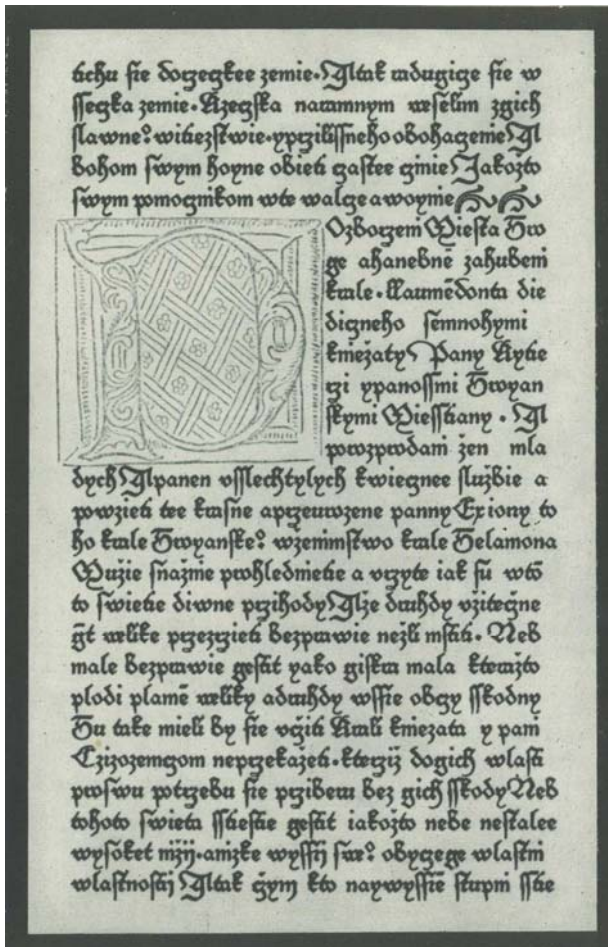 tichu sie dorzegkee zemie. Atak radugicze sie w
ssegka zemie. Rzegska naramnym weselim zgich
slawneº witiezstwie. yprzilissneho obohacenie A
bohom swym hoyne obieti gastee cinie Jakožto
swym pomocznikom wte walcze awoynie
Ozborzeni Miesta Tro
ge ahanebne zahubeni
krale. Laumēdonta die
diczneho semnohymi
kniežaty Pany Rytie
rzi ypanossmi Troyan
skymi Miesstiany. A
porozprodani žen mla
dych Apanen vsslechtylych kwiecznee službie a
powzieti tee krasne aprzeurozene panny Exiony to
ho krale Troyanskeº wženimstwo krale Telamona
Mužie snažnie prohlednietie a vrzyte iak su wto
to swietie diwne przihody Aže druhdy vžitečne
gt welike przezrzieti bezprawie nežli mstiti. Neb
male bezprawie gestit yako giskra mala kteražto
plodi plamē weliky adruhdy wssie obczy sskodny
Tu take mieli by sie včiti Krali kniezata y pani
Czizozemczom neprzekažeti. kterziž dogich wlasti
proswu potrzebu sie prziberu bez gich sskody Neb
tohoto swieta sstiestie gestit iakožto nebe nestalee
wysoket nizij. anizke wyssij sweº obyczege wlastni
wlastnostij Atak čym kto naywyssie stupni sstie